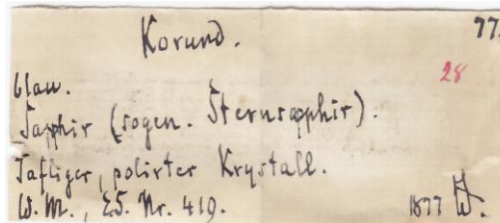 Korund.
77.
28
blau.
Sapphir (sogen. Sternsapphir).
Tafliger, polirter Krystall.
W. M., ES. Nr. 419.
1877